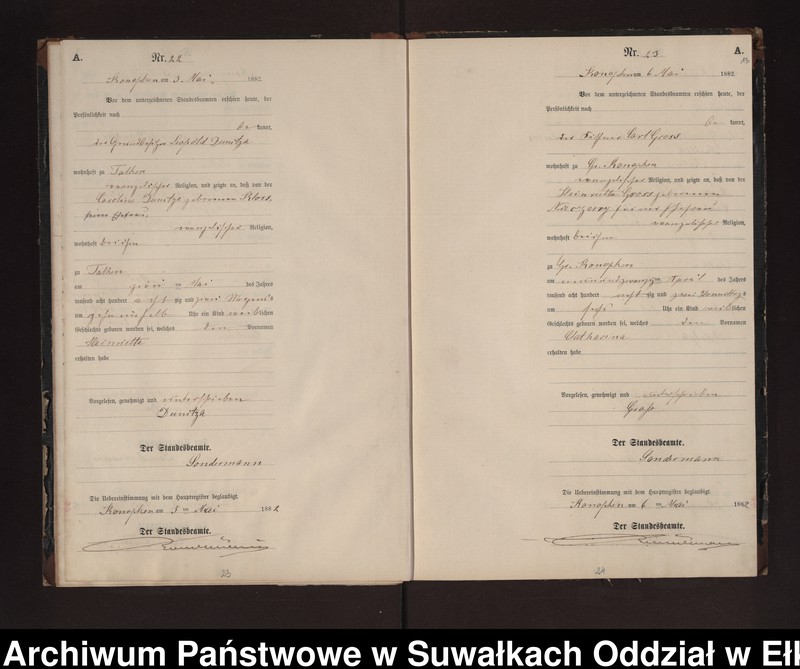 A.
Nr. 22
Konophen am 3 Mai 1882
Vor dem unterzeichneten Standesbeamten erschien heute, der
Persönlichkeit nach
be kannt,
der Grundbesitzer Leopold Danitza
wohnhaft zu Talken
evangelischer Religion, und zeigte an, daß von der
Caroline Danitza geborenen
seiner Ehefrau
evangelischer Religion,
wohnhaft bei ihm
zu Talken
am zwei ten Mai des Jahres
tausend acht hundert acht zig und zwei Morgens
um zehneinhalb Uhr ein Kind weiblichen
Geschlechts geboren worden sei, welches den Vornamen
Henriette
erhalten habe
Vorgelesen, genehmigt und unterschrieben
Danitza
Der Standesbeamte.
Sondermann
Die Uebereinstimmung mit dem Hauptregister beglaubigt.
Konophen am 3 ten Mai 1882
Der Standesbeamte.
23
A.
Nr. 23
Konophen am 6 Mai 1882
Vor dem unterzeichneten Standesbeamten erschien heute, der
Persönlichkeit nach
be kannt,
der Carl Gross
wohnhaft zu Gr. Konophen
evangelischer Religion, und zeigte an, daß von der
Heinriette Gross geborenen
seiner Ehefrau
evangelischer Religion,
wohnhaft bei ihm
zu Gr. Konophen
am neunundzwanzigsten April des Jahres
tausend acht hundert acht zig und zwei
um sechs Uhr ein Kind weiblichen
Geschlechts geboren worden sei, welches den Vornamen
Catharina
erhalten habe
Vorgelesen, genehmigt und unterschrieben
Groß
Der Standesbeamte.
Sondermann
Die Uebereinstimmung mit dem Hauptregister beglaubigt.
Konophen am 6 ten Mai 1882
Der Standesbeamte.
24
Archiwum Państwowe w Suwałkach Oddział w Eł